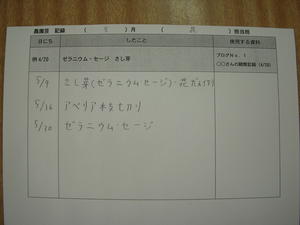 農園芸 記録 ( 5 )月 ( )担当用
日にち したこと 使用する資料
例 4/20 ゼラニウム・セージ さし芽 ブログNo.1
○○さんの観察記録(4/20)
5/9 さし芽(ゼラニウムセージ)・花がら作り
5/16 アベリア枝もカリ
5/30 ゼラニウム・セージ